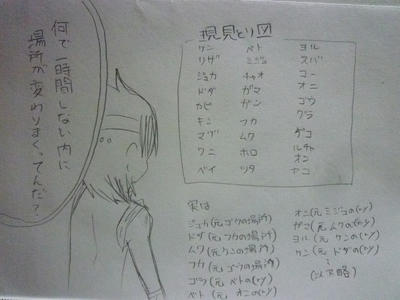 何で一時間しない内に
場所が変わりまくってんだ？
現見とり図
ケン ペト ヨル
リザ ミジュ スバ
ジュカ チャオ コー
ドダ ガマ オニ
カビ ガン ゴウ
キン フカ クラ
マグ ムク ゲコ
ワニ ホロ ルチャ
ベイ ツタ オン
ヤコ
実は
ジュカ(元ゴウの場所)
ドダ(元フカの場所)
ムク(元ケンの場所)
フカ(元ゴウの場所)
ゴウ(元ペトの(ry)
ペト(元オニの(ry)
オニ(元ミジュの(ry)
ガマ(元ムクの(ry)
ヨル(元ケンの(ry)
ケン(元ドダの(ry)
(以下略)